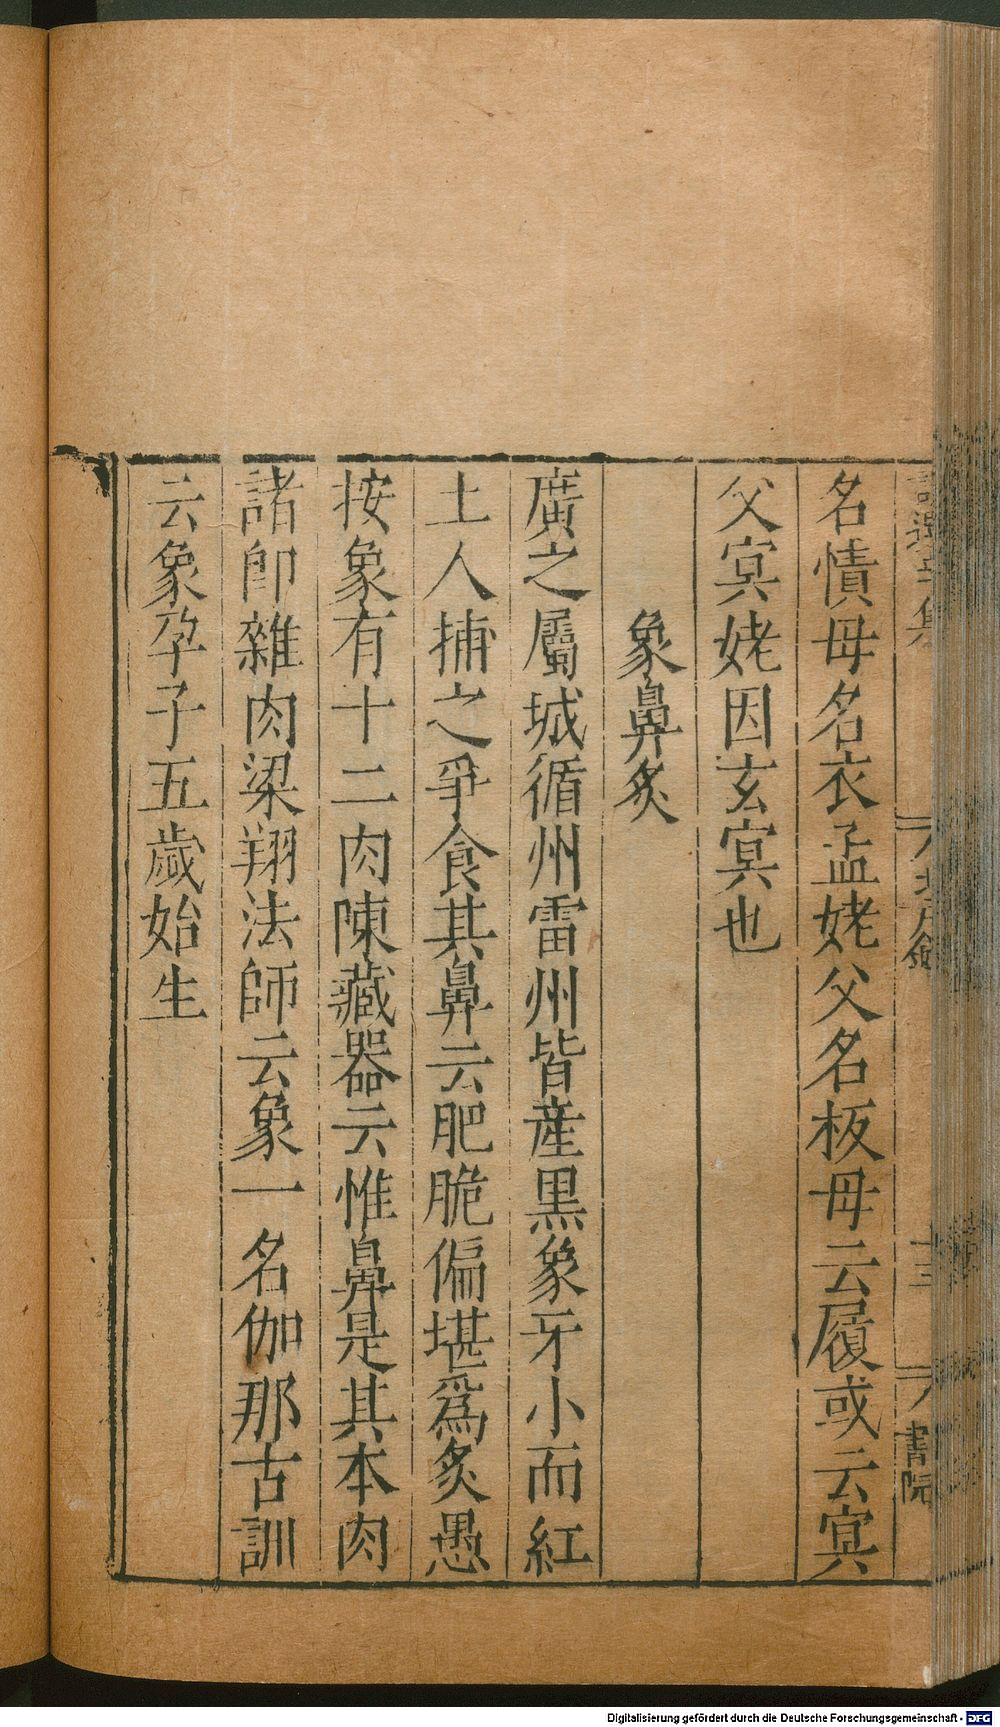 名㥽母名衣孟姥父名板母云履或云㝠
父㝠姥因玄㝠也
象鼻炙
廣之屬城循州雷州皆産黒象牙小而紅
土人捕之爭食其鼻云肥脆偏堪爲炙愚
按象有十二肉陳藏器云惟鼻是其本肉
諸卽雜肉梁翔法師云象一名伽那古訓
云象孕子五歲始生
十三
書院
Digitalisierung gefördert durch die Deutsche Forschungsgemeinschaft - DFG